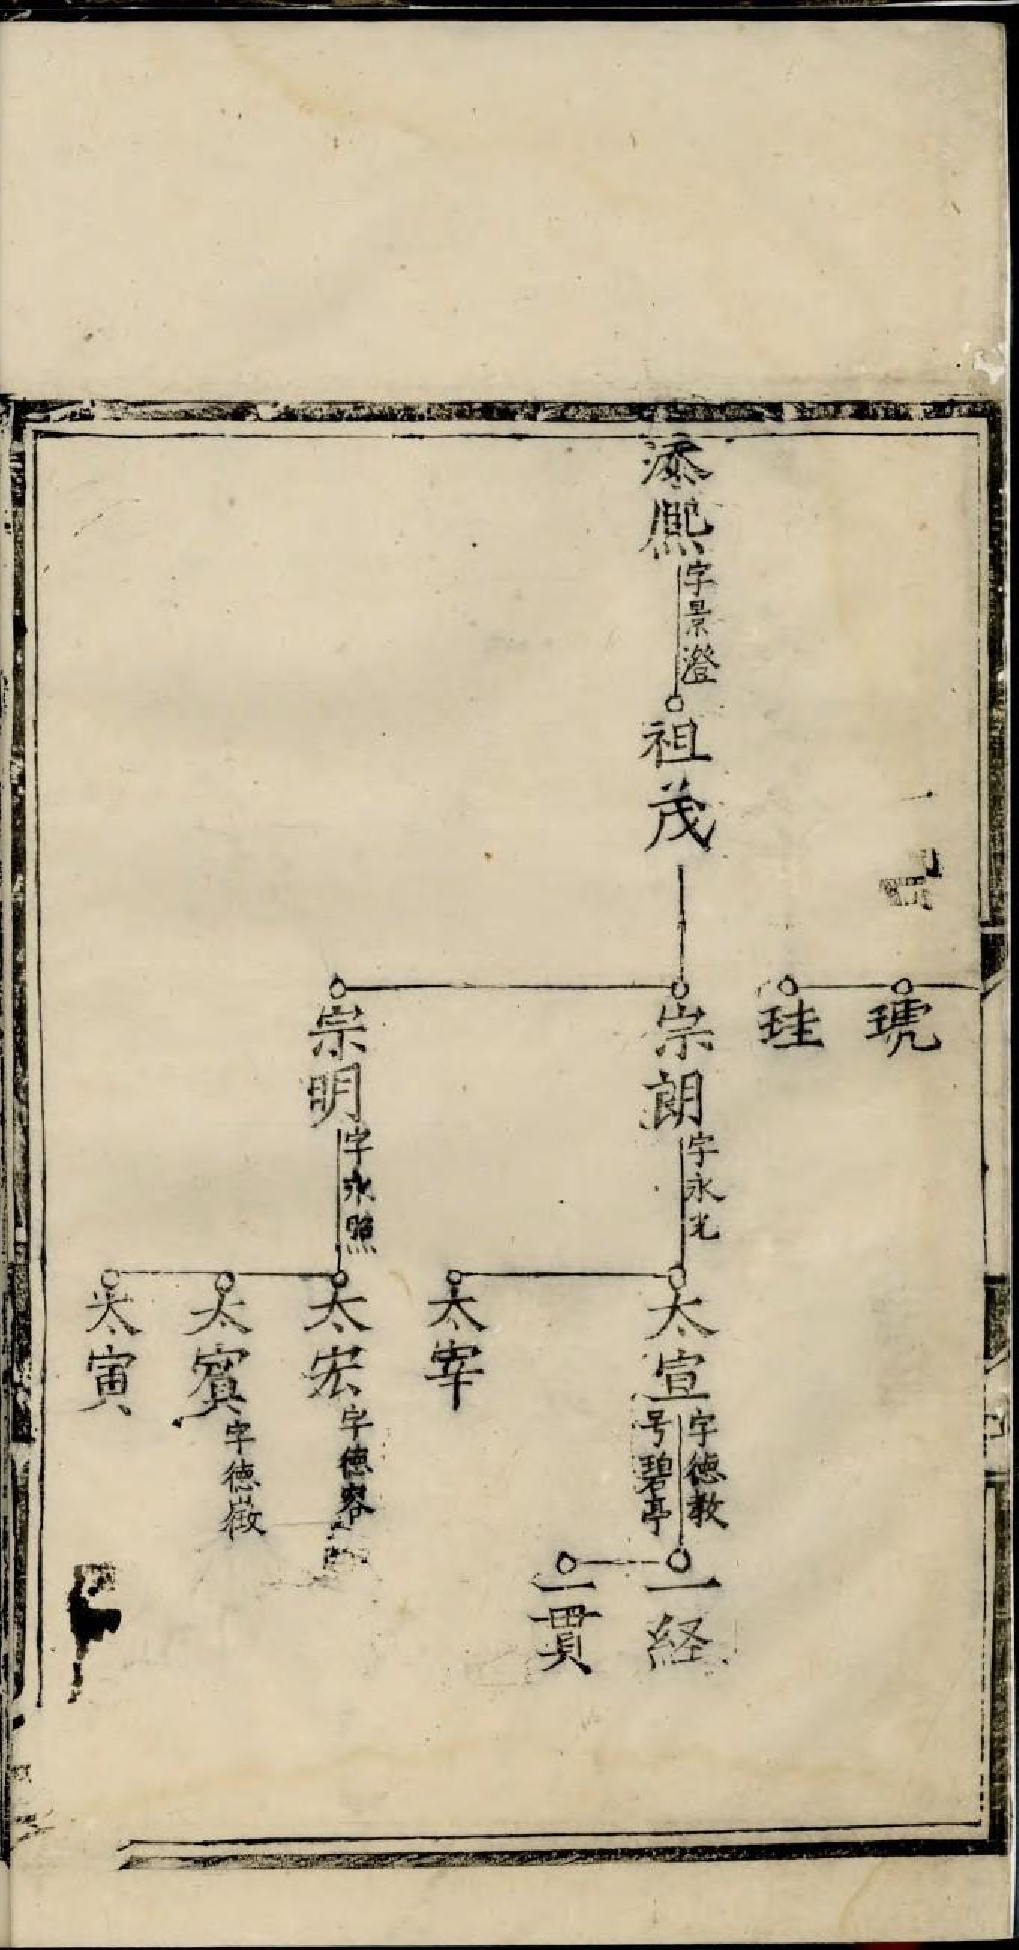 琥
珪
添熈 字景澄
祖茂
宗朗 字永光
太宣 字德教
号碧亭
一経
一貫
太宰
宗明 字永照
太宏 字德容
太賓 字德徵
太寅